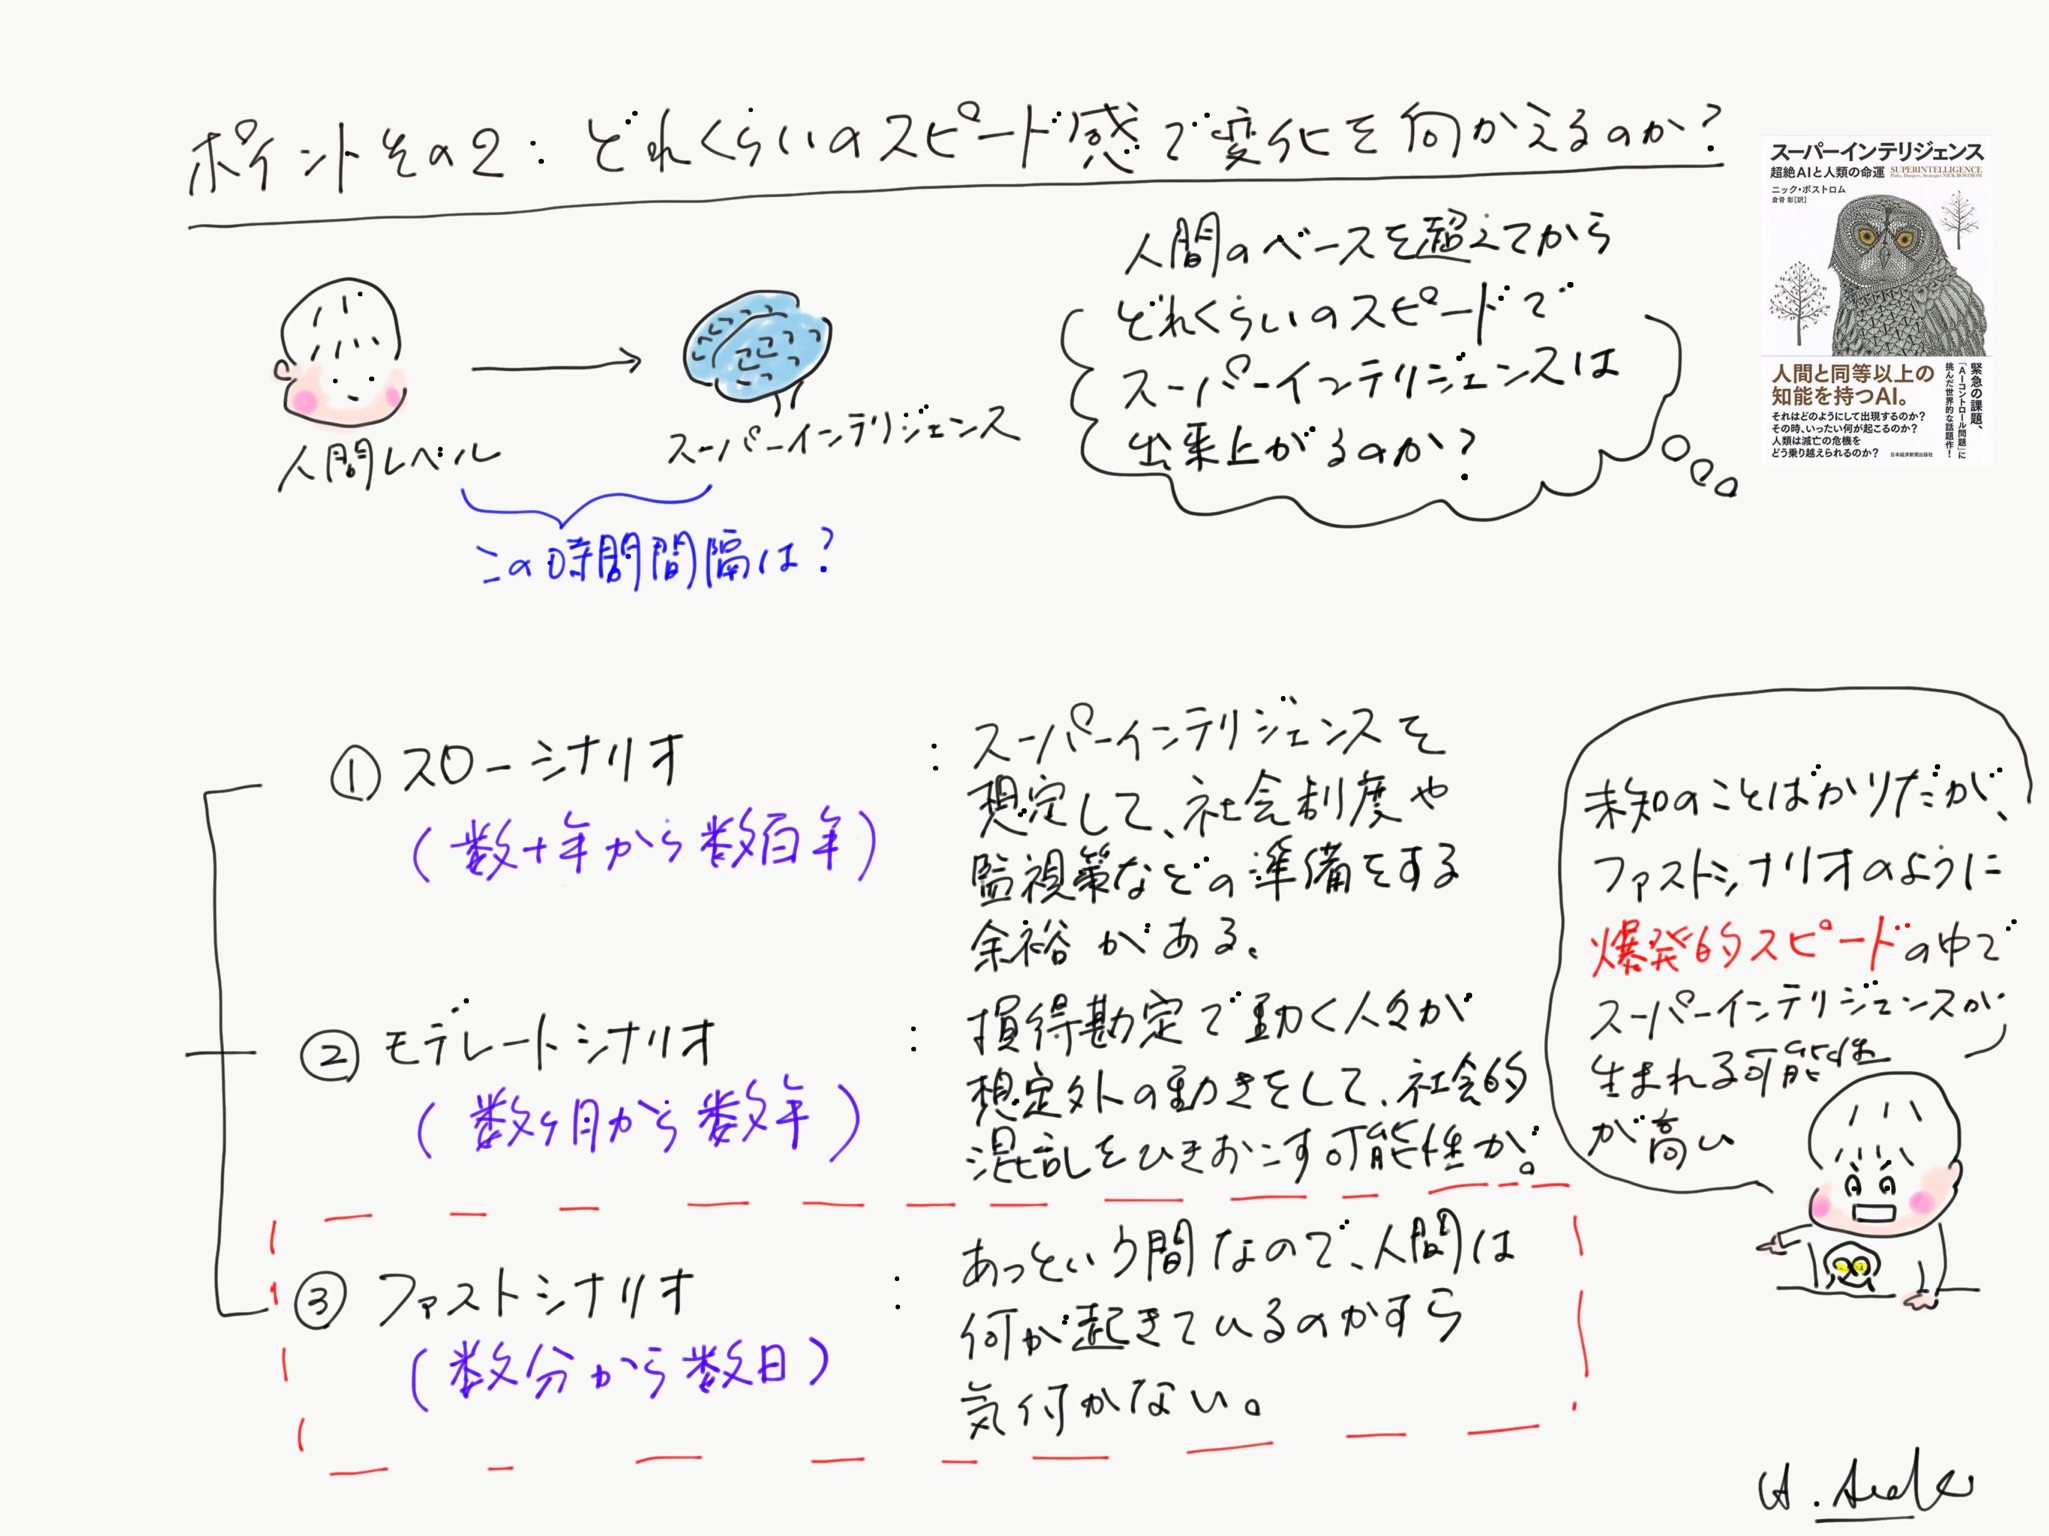 ポイントその2：どれくらいのスピード感で変化を向かえるのか？
スーパーインテリジェンス
超絶AIと人類の命運 SUPERINTELLIGENCE
Paths, Dangers, Strategies NICK BOSTROM
ニック・ボストロム
倉骨 彰[訳]
人間と同等以上の
知能を持つAI。
それはどのようにして出現するのか？
その時、いったい何が起こるのか？
人類は滅亡の危機を
どう乗り越えられるのか？
緊急の課題、
「AIコントロール問題」に
挑んだ世界的な話題作！
日本経済新聞出版社
人間のベースを超えてから
どれくらいのスピードで
スーパーインテリジェンスは
出来上がるのか？
人間レベル
スーパーインテリジェンス
この時間間隔は？
① スローシナリオ
（数十年から数百年）
：スーパーインテリジェンスを
想定して、社会制度や
監視策などの準備をする
余裕がある。
② モデレートシナリオ
（数ヶ月から数年）
：損得勘定で動く人々が
想定外の動きをして、社会的
混乱をひきおこす可能性が。
③ ファストシナリオ
（数分から数日）
：あっという間なので、人間は
何が起きているのかすら
気付かない。
未知のことばかりだが、
ファストシナリオのように
爆発的スピードの中で
スーパーインテリジェンスが
生まれる可能性
が高い